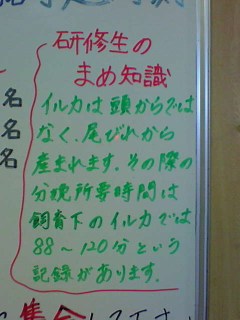 研修生の
まめ知識
イルカは頭からでは
なく、尾びれから
産まれます。その際の
分娩所要時間は
飼育下のイルカでは
88～120分という
記録があります。
名
名
名
集合して下さい